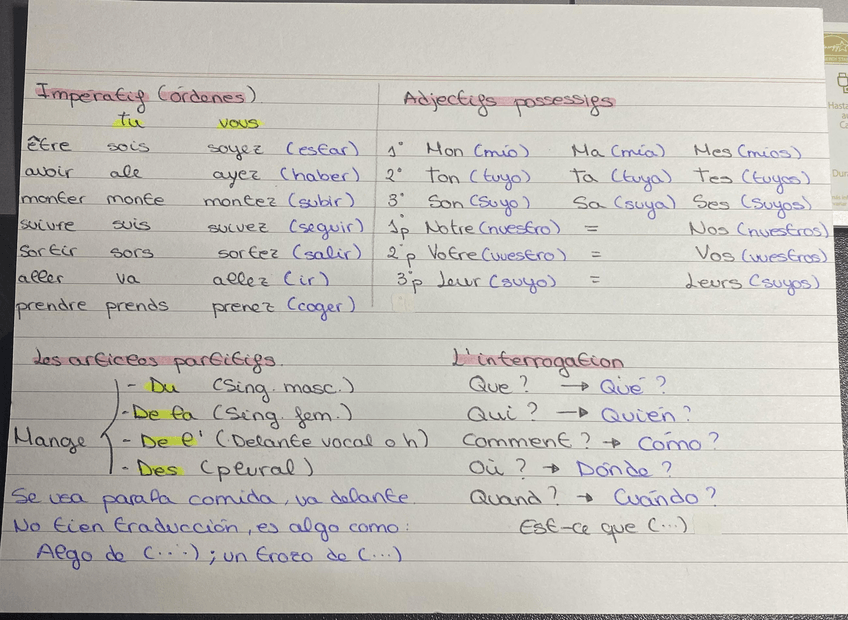 Impératif (órdenes)
tu vous
être sois soyez (estar)
avoir aie ayez (haber)
monter monte montez (subir)
suivre suis suivez (seguir)
sortir sors sortez (salir)
aller va allez (ir)
prendre prends prenez (coger)
Adjectifs possessifs
1° Mon (mío) Ma (mía) Mes (míos)
2° Ton (tuyo) Ta (tuya) Tes (tuyos)
3° Son (suyo) Sa (suya) Ses (suyos)
1p Notre (nuestro) = Nos (nuestros)
2°p Votre (vuestro) = Vos (vuestros)
3°p Leur (suyo) = Leurs (suyos)
Les articlos partitifs.
- Du (Sing. masc.)
- De la (Sing. fem.)
Mange - De l' (Delante vocal o h)
- Des (plural)
Se usa para la comida, va delante.
No tien traducción, es algo como:
Algo de (...) ; un trozo de (...)
L'interrogation
Que ? → Qué ?
Qui ? → Quién ?
Comment ? → Cómo ?
Où ? → Dónde ?
Quand ? → Cuándo ?
Est-ce que (...)
Hasta